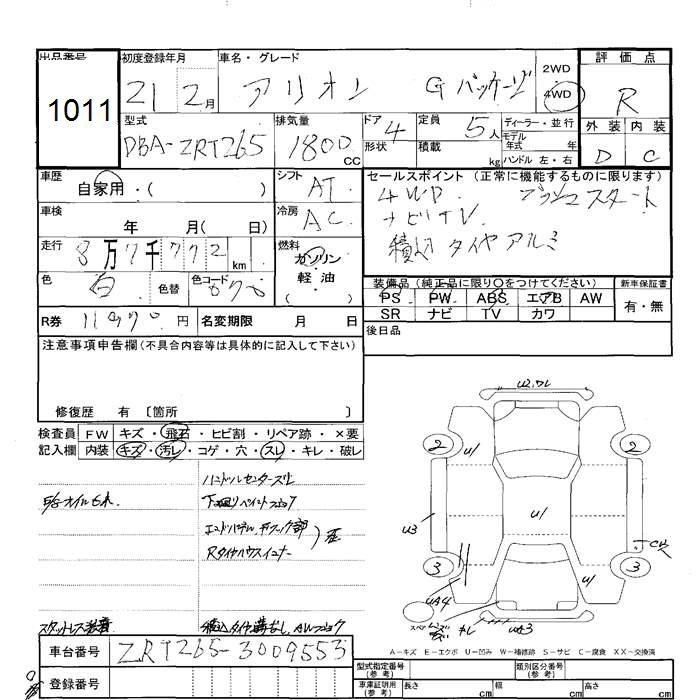 出品番号 初度登録年月 車名・グレード 2WD 評価点
1011 21 2月 アリオン Gパッケージ 4WD R
型式 排気量 ドア 4 定員 5人 ディーラー・並行 外装 内装
DBA-ZRT265 1800cc 形状 積載 kg モデル年式 年式 ハンドル 左・右 D C
車歴 自家用・( ) シフト AT セールスポイント (正常に機能するものに限ります)
車検 年 月( 日) 冷房 AC 4WD プッシュスタート
ナビTV
積込タイヤアルミ
走行 8万7千772km 燃料 ガソリン 軽油
色 白 色替 色コード 070
装備品 (純正品に限り○をつけてください) 新車保証書
PS PW ABS エアB AW 有・無
SR ナビ TV カワ
R券 11970円 名変期限 月 日 後日品
注意事項申告欄(不具合内容等は具体的に記入して下さい)
修復歴 有 〔箇所 〕
検査員 FW キズ・飛石・ヒビ割・リペア跡・×要
記入欄 内装 キズ・汚レ・コゲ・穴・スレ・キレ・破レ
ハンドルセンタースレ
下廻りペイント
Rタイヤハウスインナー
スタットレス装着
積込タイヤ溝なし
U2
U1
2
2
U1
U3
3
3
U1
UA4
キレ
UA3
A-キズ E-エクボ U-凹み W-補修跡 S-サビ C-腐食 XX-交換済
車台番号 ZRT265-3009553
登録番号
型式指定番号(参考) 類別区分番号(参考)
車庫証明用(参考) 長さ cm 幅 cm 高さ cm